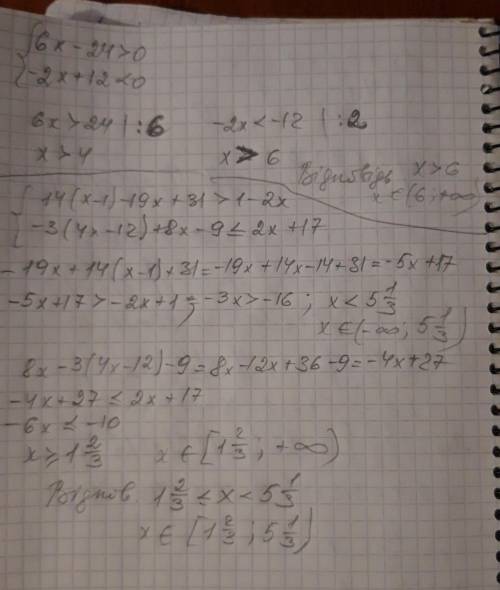 {6x-24>0
{-2x+12<0
6x>24 | :6
x>4
-2x<-12 | :2
x>6
Відповідь x>6
x∈(6;+∞)
{14(x-1)-19x+31>1-2x
{-3(4x-12)+8x-9≤2x+17
-19x+14(x-1)+31=-19x+14x-14+31=-5x+17
-5x+17>-2x+1; -3x>-16; x<5 1/3
x∈(-∞; 5 1/3)
8x-3(4x-12)-9=8x-12x+36-9=-4x+27
-4x+27≤2x+17
-6x≤-10
x≥1 2/3 x∈[1 2/3; +∞)
Віднов. 1 2/3≤x<5 1/3
x∈[1 2/3; 5 1/3)